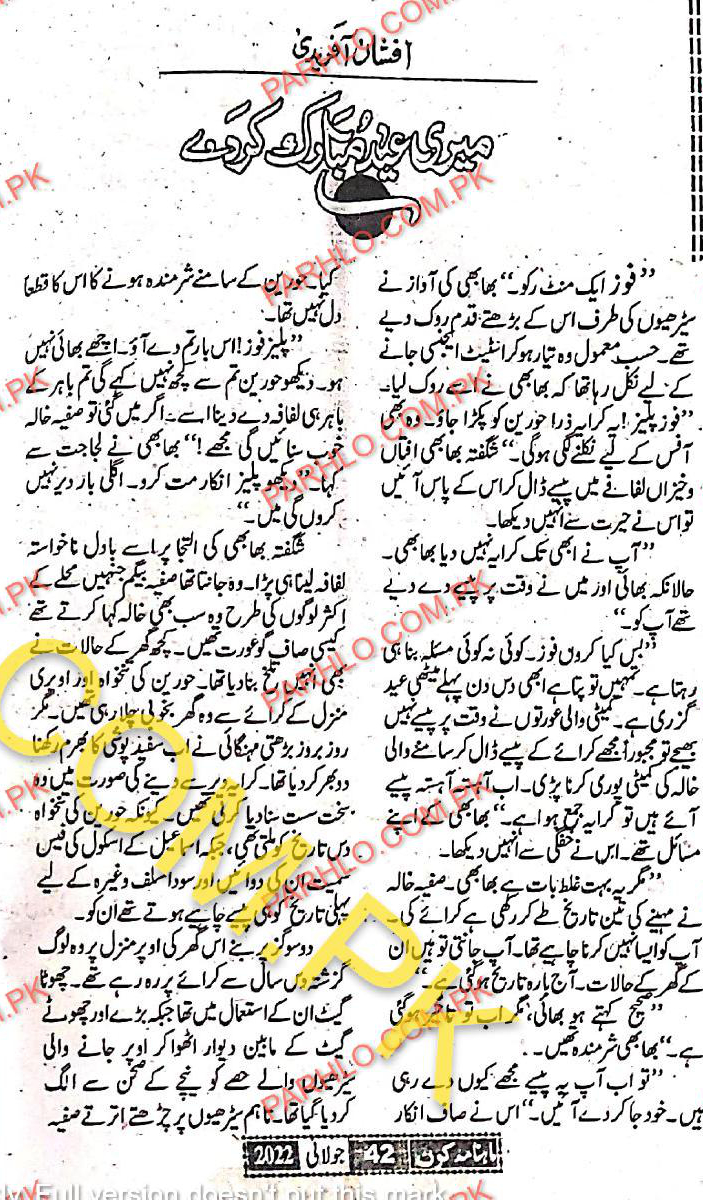 افشاں آفریدی
میری عید مبارک کردے
”فوز ایک منٹ رکو۔“ بھابھی کی آواز نے
سیڑھیوں کی طرف اس کے بڑھتے قدم روک دیے
تھے۔ حسب معمول وہ تیار ہوکر اسٹیٹ ایجنسی جانے
کے لیے نکل رہا تھا کہ بھابھی نے اسے روک لیا۔
”فوز پلیز! یہ کرایہ ذرا حورین کو پکڑا جاؤ۔ وہ بھی
آفس کے لیے نکلنے لگی ہوگی۔“ شگفتہ بھابھی افتاں
و خیزاں لفافے میں پیسے ڈال کر اس کے پاس آئیں
تو اس نے حیرت سے انہیں دیکھا۔
”آپ نے ابھی تک کرایہ نہیں دیا بھابھی۔
حالانکہ بھائی اور میں نے وقت پر پیسے دے دیے
تھے آپ کو۔“
”بس کیا کروں فوز۔ کوئی نہ کوئی مسئلہ بنا ہی
رہتا ہے۔ تمہیں تو پتا ہے ابھی دس دن پہلے میٹھی عید
گزری ہے۔ کمیٹی والی عورتوں نے وقت پر پیسے نہیں
بھیجے تو مجبوراً مجھے کرائے کے پیسے ڈال کر سامنے والی
خالہ کی کمیٹی پوری کرنا پڑی۔ اب آہستہ آہستہ پیسے
آئے ہیں تو کرایہ جمع ہوا ہے۔“ بھابھی کے اپنے
مسائل تھے۔ اس نے خفگی سے انہیں دیکھا۔
”مگر یہ بہت غلط بات ہے بھابھی۔ صفیہ خالہ
نے مہینے کی تین تاریخ طے کر رکھی ہے کرائے کی۔
آپ کو ایسا نہیں کرنا چاہیے تھا۔ آپ جانتی تو ہیں ان
کے گھر کے حالات۔ آج بارہ تاریخ ہوگئی ہے۔“
”صحیح کہتے ہو بھائی، مگر اب تو تاخیر ہو گئی
ہے۔“ بھابھی شرمندہ تھیں۔
”تو اب آپ یہ پیسے مجھے کیوں دے رہی
ہیں۔ خود جا کر دے آئیں۔“ اس نے صاف انکار
کیا۔ حورین کے سامنے شرمندہ ہونے کا اس کا قطعاً
دل نہیں تھا۔
”پلیز فوز! اس بار تم دے آؤ۔ اچھے بھائی نہیں
ہو۔ دیکھو حورین تم سے کچھ نہیں کہے گی تم باہر کے
باہر ہی لفافہ دے دینا اسے۔ اگر میں گئی تو صفیہ خالہ
خوب سنائیں گی مجھے!“ بھابھی نے لجاجت سے
کہا۔ ”دیکھو پلیز انکار مت کرو۔ اگلی بار دیر نہیں
کروں گی میں۔“
شگفتہ بھابھی کی التجا پر اسے بادل ناخواستہ
لفافہ لینا ہی پڑا۔ وہ جانتا تھا صفیہ بیگم جنہیں محلے کے
اکثر لوگوں کی طرح وہ سب بھی خالہ کہا کرتے تھے
کیسی صاف گو عورت تھیں۔ کچھ گھر کے حالات نے
بھی انہیں تلخ بنا دیا تھا۔ حورین کی تنخواہ اور اوپری
منزل کے کرائے سے وہ گھر بخوبی چلا رہی تھیں۔ مگر
روز بروز بڑھتی مہنگائی نے اب سفید پوشی کا بھرم رکھنا
دوبھر کردیا تھا۔ کرایہ دیر سے دینے کی صورت میں وہ
سخت سست سنا دیا کرتی تھیں۔ کیونکہ حورین کی تنخواہ
دس تاریخ کو ملتی تھی، جبکہ اسماعیل کے اسکول کی فیس
سمیت ان کی دوائیں اور سودا سلف وغیرہ کے لیے
پہلی تاریخ کو ہی پیسے چاہیے ہوتے تھے ان کو۔
دو سو گز پر بنے اس گھر کی اوپر منزل پر وہ لوگ
گزشتہ دس سال سے کرائے پر رہ رہے تھے۔ چھوٹا
گیٹ ان کے استعمال میں تھا جبکہ بڑے اور چھوٹے
گیٹ کے مابین دیوار اٹھوا کر اوپر جانے والی
سیڑھیوں والے حصے کو نیچے کے صحن سے الگ
کردیا گیا تھا۔ تاہم سیڑھیوں پر چڑھتے اترتے صفیہ
ماہنامہ کرن 42 جولائی 2022
PARHLO.COM.PK
COM.PK
Full version doesn't put this mark.